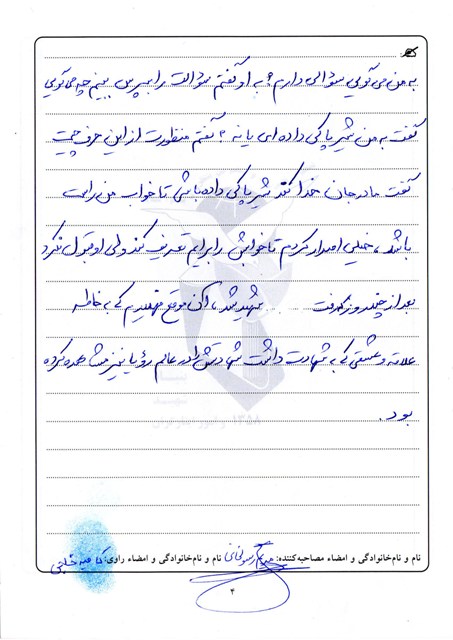 به من می‌گویی سؤالی دارم؟ به او گفتم سؤالت را بپرس ببینم چه می‌گویی
گفت به من شیر پاکی داده‌ای یا نه؟ گفتم منظورت از این حرف چیست
گفت مادر جان خدا کند شیر پاکی داده باشی تا خواب من راست
باشد، خیلی اصرار کردم تا خوابش را برایم تعریف کند ولی او قبول نکرد
بعد از چند روز که رفت شهید شد، آن موقع فهمیدم که به خاطر
علاقه و عشقی که به شهادت داشت شهادتش را در عالم رؤیا نیز مشاهده کرده
بود.
۱۳۵۸
نام و نام‌خانوادگی و امضاء مصاحبه‌کننده: نام و نام‌خانوادگی و امضاء راوی:
۴